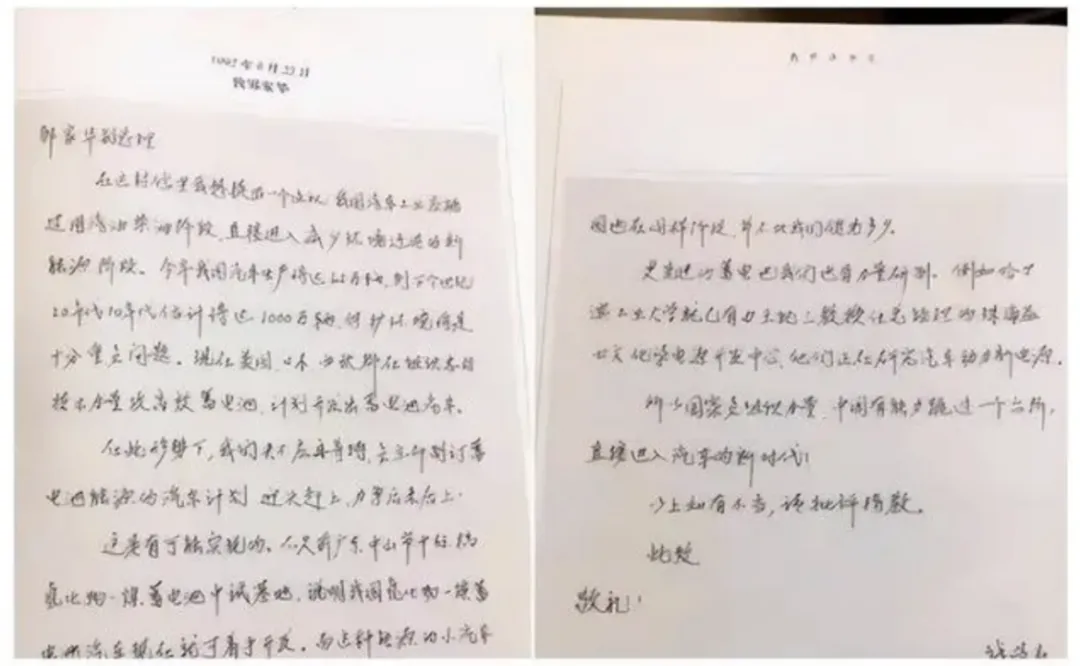 1992年8月22日
致邹家华
邹家华副总理
在这封信里我想提出一个建议：我国汽车工业应跳
过用汽油柴油阶段，直接进入减少环境污染的新
能源阶段。今年我国汽车生产将达 万辆，到下个世纪
20年代10年代估计将达1000万辆，保护环境将是
十分重要问题。现在美国、日本、西欧都在组织各自
技术力量攻高效蓄电池，计划开发出蓄电池汽车。
在此形势下，我们决不应再等待，要立即制订蓄
电池能源的汽车计划，迎头赶上，力争后来居上。
这是有可能实现的。不久前广东中山市中
氢化物—镍蓄电池中试基地，说明我国氢化物—镍蓄
电池汽车现在就可着手开发。而这种能源的小汽车
国也在同样阶段，并不比我们领先多少。
更先进的蓄电池我们也有力量研制。例如哈尔
滨工业大学就已有 教授任总经理的珠海益
士文化学电源开发中心，他们正在研究汽车动力新电源。
所以国家要组织力量，中国有能力跳过一个台阶，
直接进入汽车的新时代！
以上如有不当，请批评指教。
此致
敬礼！
钱学森